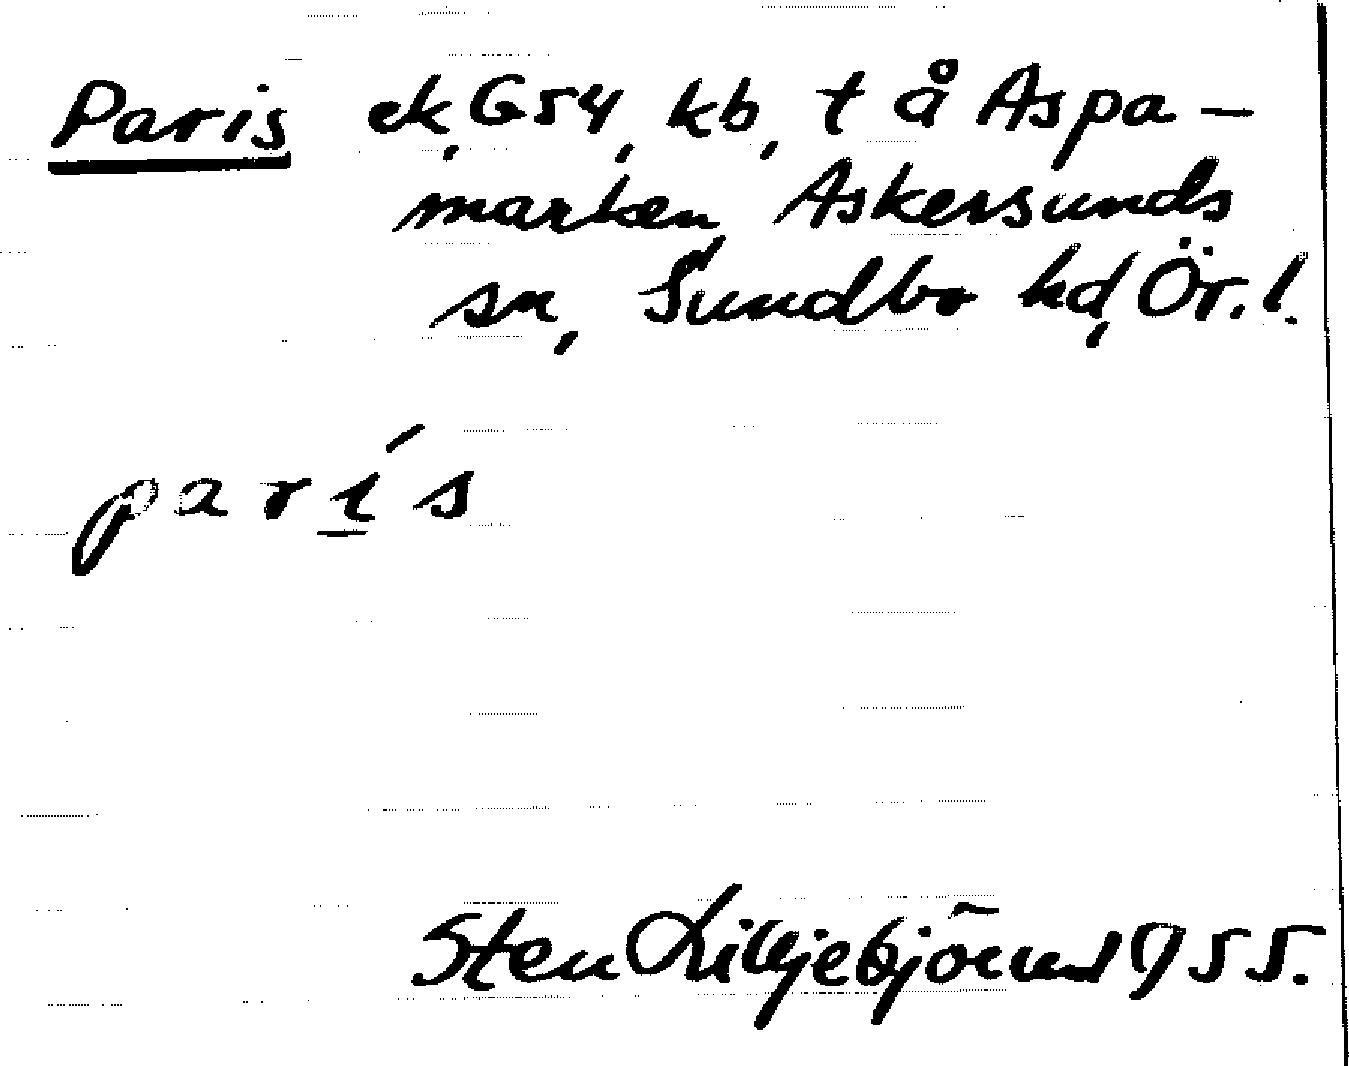 Paris ek, G54, kb, t å Aspa-
marken, Askersunds
sn, Sundbo hd, Ör. l.
parís
Sten Lilljebjörn 1955.